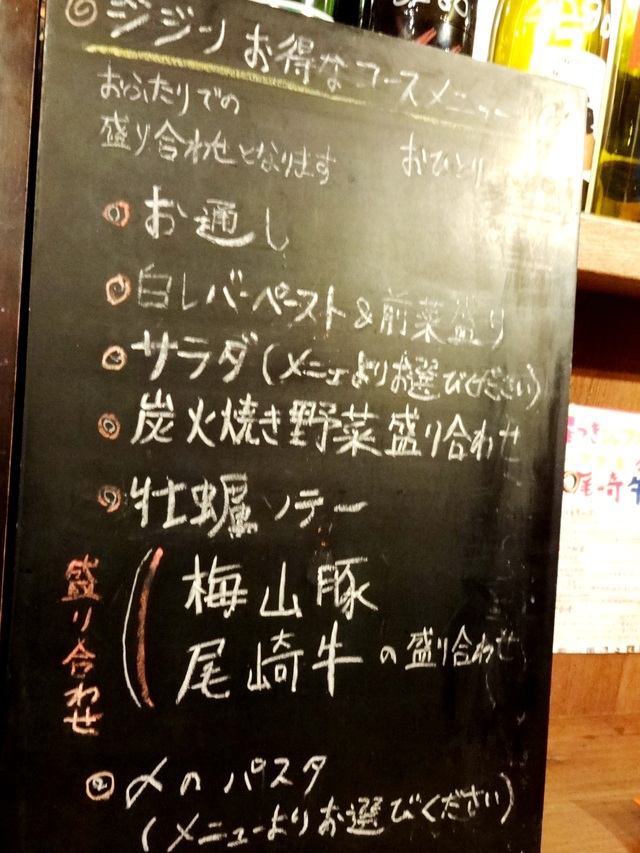 ジジン お得なコースメニュー
おふたりでの
盛り合わせとなります
おひとり
お通し
白レバーペースト&前菜盛り
サラダ(メニューよりお選びください)
炭火焼き野菜盛り合わせ
牡蠣ソテー
盛り合わせ
梅山豚
尾崎牛の盛り合わせ
〆のパスタ
(メニューよりお選びください)
尾崎牛